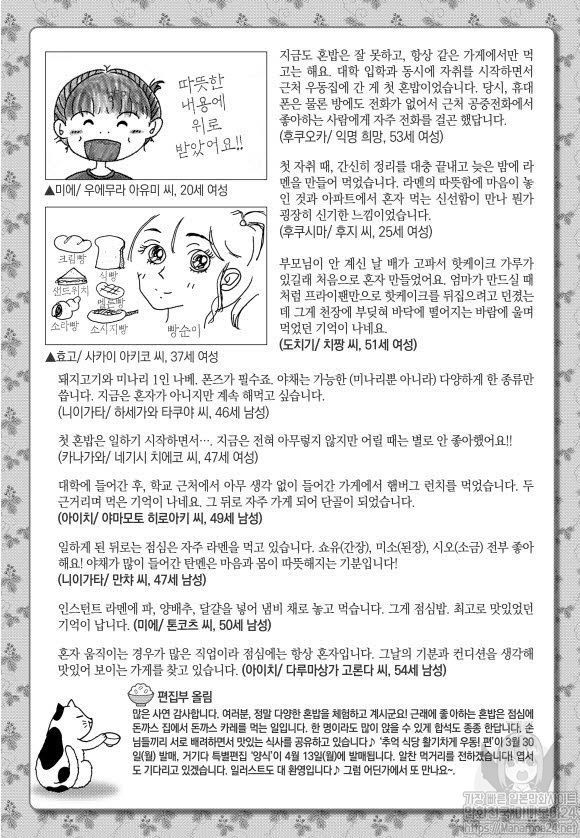 따뜻한
내용에
위로
받았어요!!
▲미에/ 우에무라 아유미 씨, 20세 여성
크림빵
식빵
샌드위치
멜론빵
소라빵
소시지빵
빵순이
▲효고/ 사카이 아키코 씨, 37세 여성
지금도 혼밥은 잘 못하고, 항상 같은 가게에서만 먹
고는 해요. 대학 입학과 동시에 자취를 시작하면서
근처 우동집에 간 게 첫 혼밥이었습니다. 당시, 휴대
폰은 물론 방에도 전화가 없어서 근처 공중전화에서
좋아하는 사람에게 자주 전화를 걸곤 했답니다.
(후쿠오카/ 익명 희망, 53세 여성)
첫 자취 때, 간신히 정리를 대충 끝내고 늦은 밤에 라
멘을 만들어 먹었습니다. 라멘의 따뜻함에 마음이 놓
인 것과 아파트에서 혼자 먹는 신선함이 만나 뭔가
굉장히 신기한 느낌이었습니다.
(후쿠시마/ 후지 씨, 25세 여성)
부모님이 안 계신 날 배가 고파서 핫케이크 가루가
있길래 처음으로 혼자 만들었어요. 엄마가 만드실 때
처럼 프라이팬만으로 핫케이크를 뒤집으려고 던졌는
데 그게 천장에 부딪혀 바닥에 떨어지는 바람에 울며
먹었던 기억이 나네요.
(도치기/ 치짱 씨, 51세 여성)
돼지고기와 미나리 1인 나베. 폰즈가 필수죠. 야채는 가능한 (미나리뿐 아니라) 다양하게 한 종류만
씁니다. 지금은 혼자가 아니지만 계속 해먹고 싶습니다.
(니이가타/ 하세가와 타쿠야 씨, 46세 남성)
첫 혼밥은 일하기 시작하면서…. 지금은 전혀 아무렇지 않지만 어릴 때는 별로 안 좋아했어요!!
(카나가와/ 네기시 치에코 씨, 47세 여성)
대학에 들어간 후, 학교 근처에서 아무 생각 없이 들어간 가게에서 햄버그 런치를 먹었습니다. 두
근거리며 먹은 기억이 나네요. 그 뒤로 자주 가게 되어 단골이 되었습니다.
(아이치/ 야마모토 히로아키 씨, 49세 남성)
일하게 된 뒤로는 점심은 자주 라멘을 먹고 있습니다. 쇼유(간장), 미소(된장), 시오(소금) 전부 좋아
해요! 야채가 많이 들어간 탄멘은 마음과 몸이 따뜻해지는 기분입니다!
(니이가타/ 만쟈 씨, 47세 남성)
인스턴트 라멘에 파, 양배추, 달걀을 넣어 냄비 채로 놓고 먹습니다. 그게 점심밥. 최고로 맛있었던
기억이 납니다. (미에/ 톤코츠 씨, 50세 남성)
혼자 움직이는 경우가 많은 직업이라 점심에는 항상 혼자입니다. 그날의 기분과 컨디션을 생각해
맛있어 보이는 가게를 찾고 있습니다. (아이치/ 다루마상가 고론다 씨, 54세 남성)
편집부 올림
많은 사연 감사합니다. 여러분, 정말 다양한 혼밥을 체험하고 계시군요! 근래에 좋아하는 혼밥은 점심에
돈까스 집에서 돈까스 카레를 먹는 일입니다. 한 명이라도 많이 앉을 수 있게 합석도 종종 한답니다. 손
님들끼리 서로 배려하면서 맛있는 식사를 공유하고 있습니다♪ '추억 식당 활기차게 우동! 편'이 3월 30
일(월) 발매, 거기다 특별편집 '양식'이 4월 13일(월)에 발매됩니다. 알찬 먹거리를 전하겠습니다! 엽서
도 기다리고 있겠습니다. 일러스트도 대 환영입니다♪ 그럼 어딘가에서 또 만나요~.
가장빠른 일본만화사이트
https://Manamoa24.net